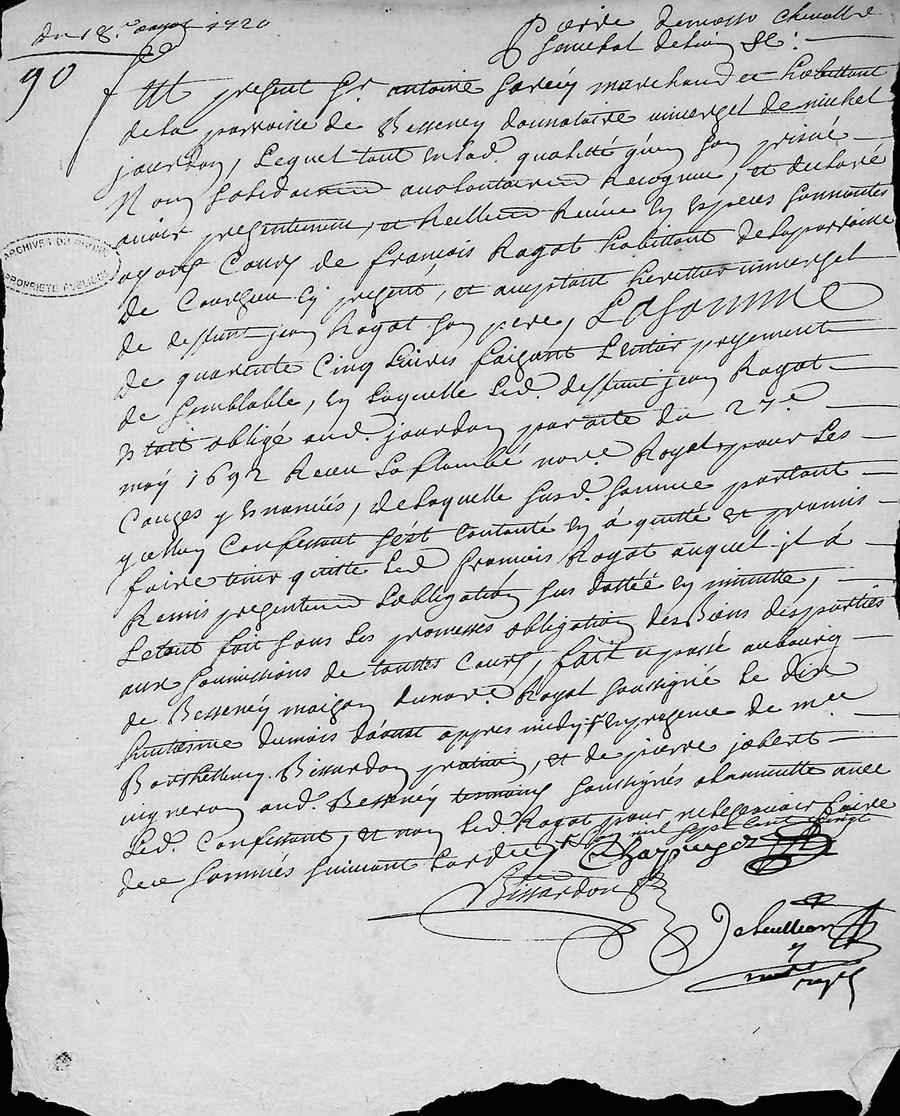 du 18e aoust 1720
Pierre demasso Chevallier
Senechal de lion &c:
90
Fut present Sr. antoine garcin marchand et habittant
de la parroisse de Besseney donnataire universel de michel
jourdan, Lequel tant en lad. qualitté qu'en son privé
Nom solidairement a volontairement Recognu, et declaré
avoir presentement et Reellement Receu en especes sonnantes
ayans Cours de francois Ragot habittant de la parroisse
de Courzieu cy present, et aceptant herittier universel
de deffunt jean Ragot son pere, La Somme
de quarente Cinq Livres faisant L'entier payement
de semblable, en laquelle Led. deffunt jean Ragot
Estoit obligé aud. jourdan par acte du 27e
may 1692 Receu La plombé nore. Royal pour Les
Causes y Enoncées, de laquelle susd. somme partant
Confessant s'est Contanté en a quitté et promis
faire tenir quitte Led. francois Ragot auquel il a
Remis presentement L'obligation sus dattée en minutte,
Le tout fait sous Les promesses obligation des Biens des parties
aux soumissions de touttes Cours, fait et passé au bourg
de Besseney maison du nore. Royal soussigné Le dix
huitiesme du mois d'aoust appres midy en presence de mre
Barthellemy Bissardon praticien, et de pierre jobert
vigneron aud. Besseney tesmoins soussignés a la minutte avec
Led. Confessant, et non Led. Ragot pour ne le scavoir faire
mil sept cent vingt
de ce sommés suivant L'ordce
Bissardon